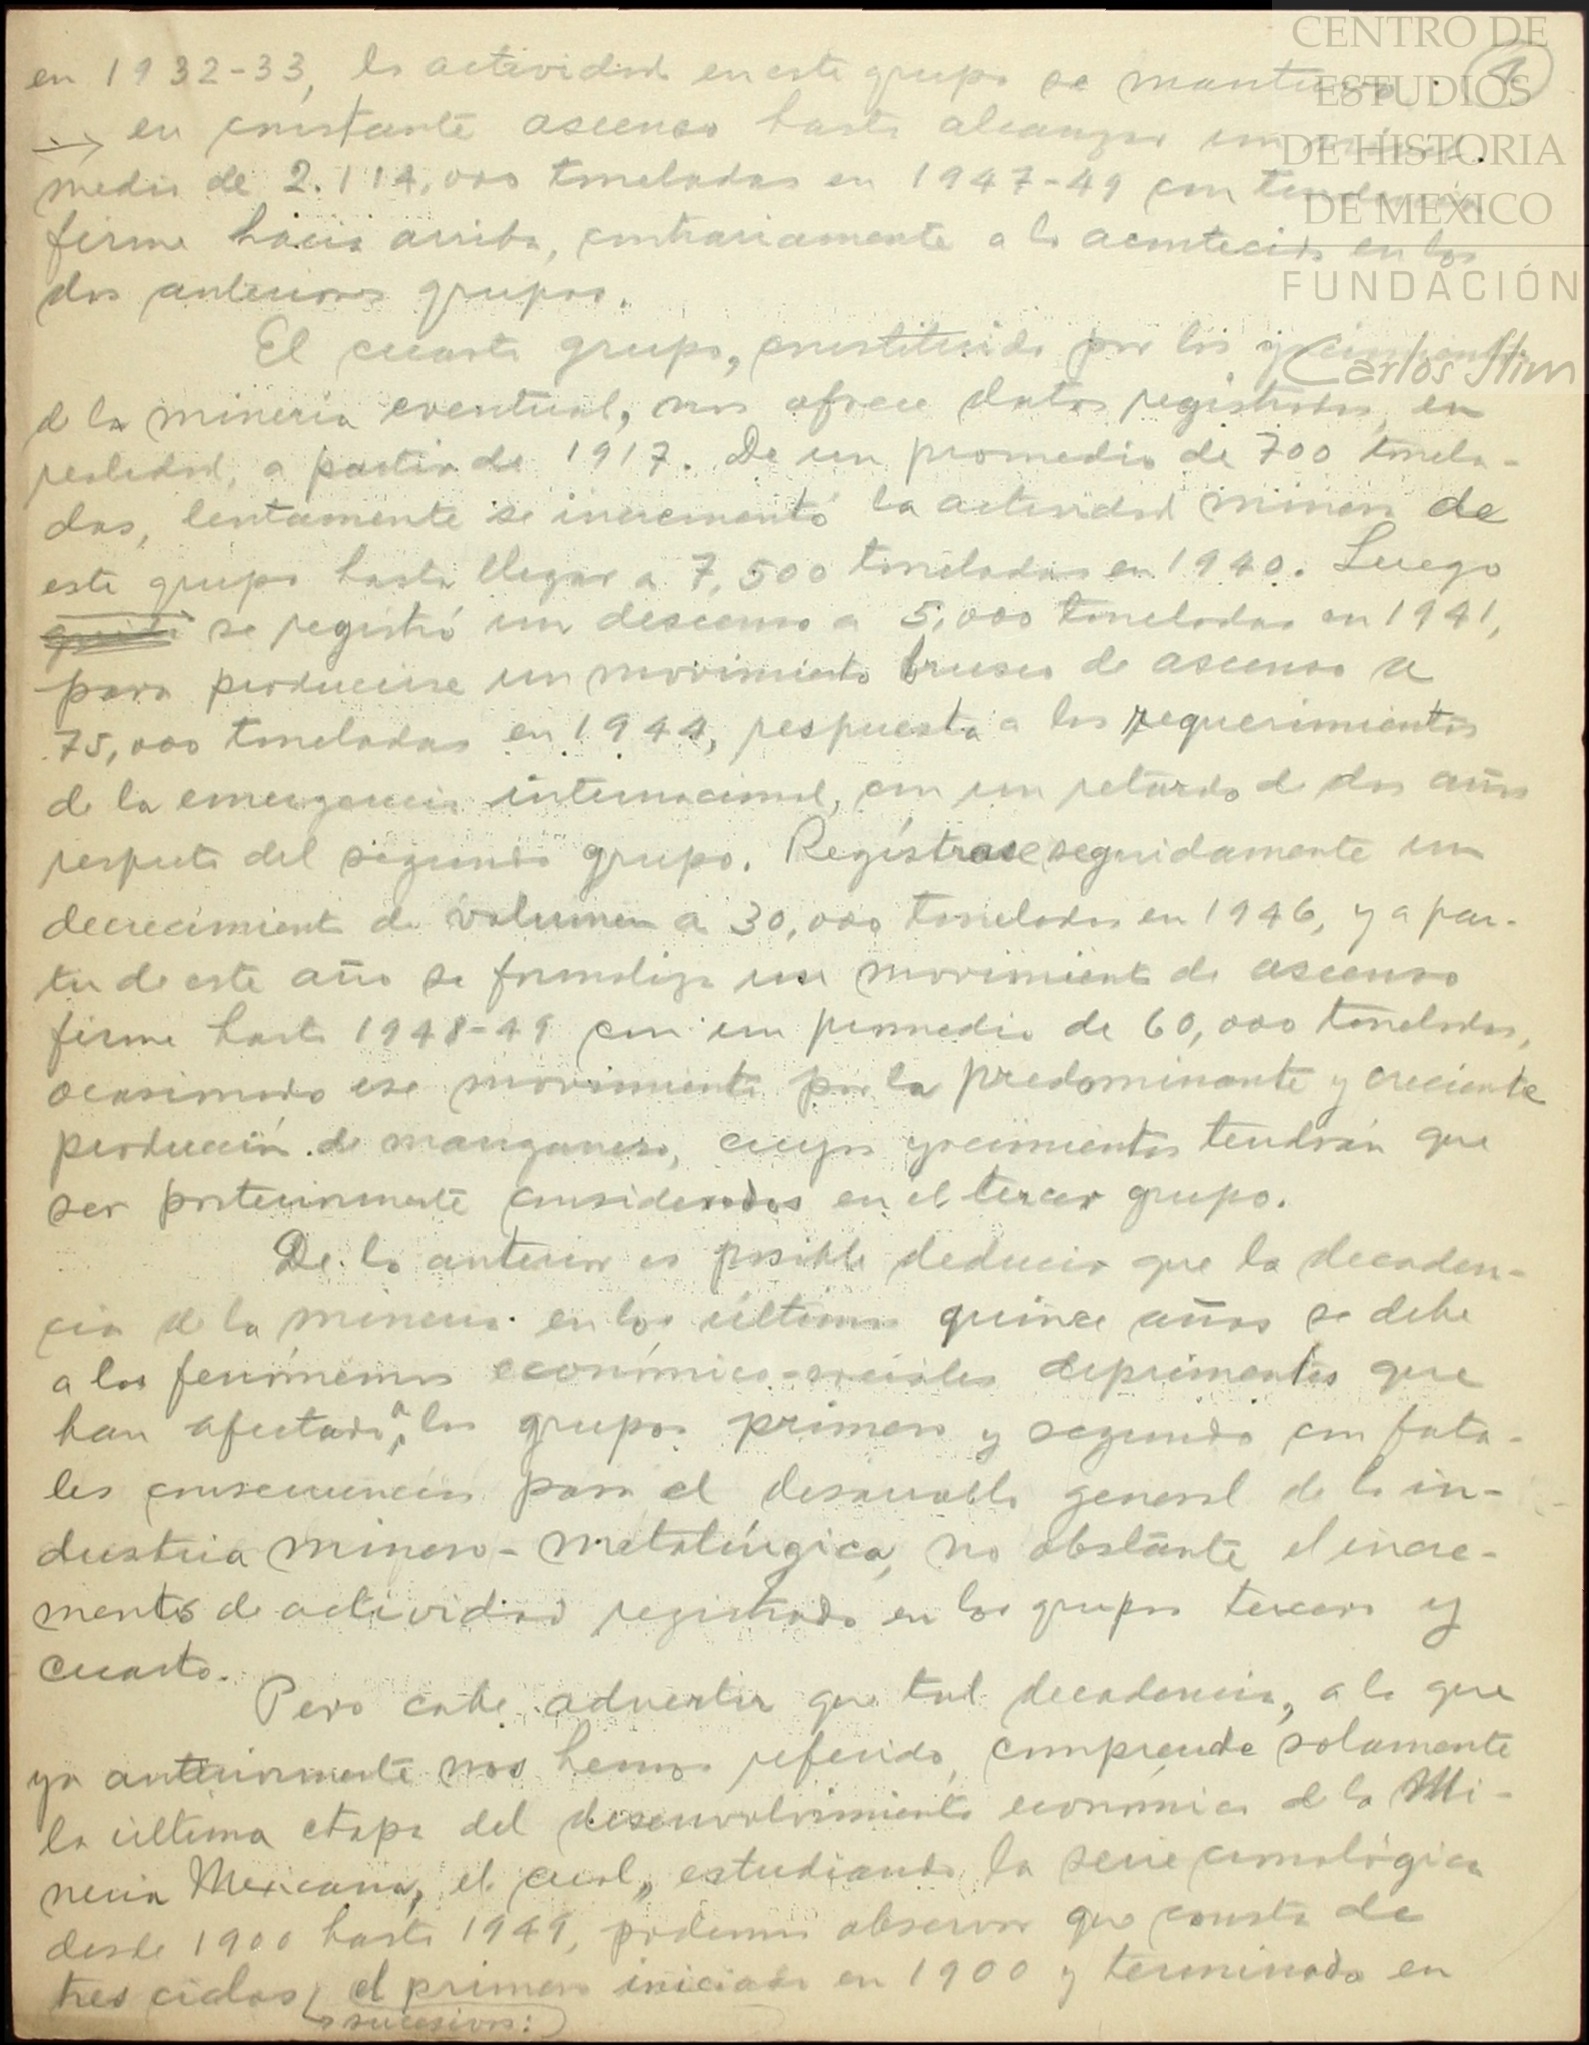 CENTRO DE
ESTUDIOS
DE HISTORIA
DE MEXICO
FUNDACIÓN
Carlos Slim
en 1932-33, la actividad en este grupo se mantuvo
en constante ascenso hasta alcanzar un
medio de 2.114,000 toneladas en 1947-49 con tendencia
firme hacia arriba, contrariamente a lo acontecido en los
dos anteriores grupos.
El cuarto grupo, constituido por los yacimientos
de la minería eventual, nos ofrece datos registrados, en
realidad, a partir de 1917. De un promedio de 700 tonela-
das, lentamente se incrementó la actividad minera de
este grupo hasta llegar a 7,500 toneladas en 1940. Luego
se registró un descenso a 5,000 toneladas en 1941,
para producirse un movimiento brusco de ascenso a
75,000 toneladas en 1944, respuesta a los requerimientos
de la emergencia internacional, con un retardo de dos años
respecto del segundo grupo. Regístrase seguidamente un
decrecimiento de volumen a 30,000 toneladas en 1946, y a par-
tir de este año se formaliza un movimiento de ascenso
firme hasta 1948-49 con un promedio de 60,000 toneladas,
ocasionado ese movimiento por la predominante y creciente
producción de manganeso, cuyos yacimientos tendrán que
ser posteriormente considerados en el tercer grupo.
De lo anterior es posible deducir que la decaden-
cia de la minería en los últimos quince años se debe
a los fenómenos económico-sociales deprimentes que
han afectado a los grupos primero y segundo con fata-
les consecuencias para el desarrollo general de la in-
dustria minero-metalúrgica, no obstante el incre-
mento de actividad registrado en los grupos tercero y
cuarto.
Pero cabe advertir que tal decadencia, a la que
ya anteriormente nos hemos referido, comprende solamente
la última etapa del desenvolvimiento económico de la Mi-
nería Mexicana, el cual, estudiando la serie cronológica
desde 1900 hasta 1949, podemos observar que consta de
tres ciclos sucesivos: el primero iniciado en 1900 y terminado en